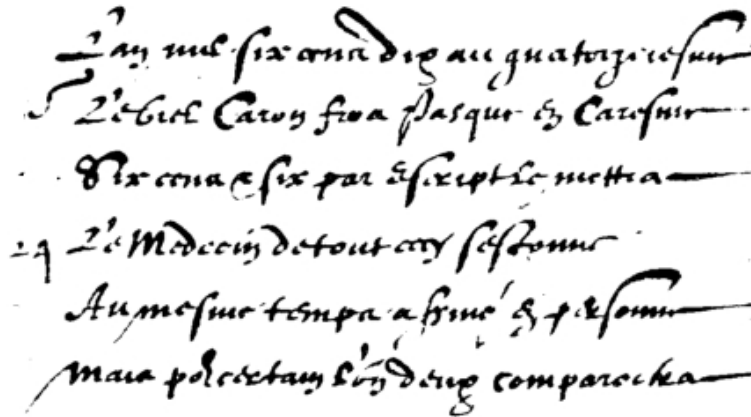 L'an mil six cens dix au quatorziesme
Le viel Caron fera Pasque en Caresme
Six cens & six par escript le mettra
24 Le Medecin de tout cecy s'estonne
Au mesme temps assiné en personne
Mais pour certain l'ũn deux comparoistra